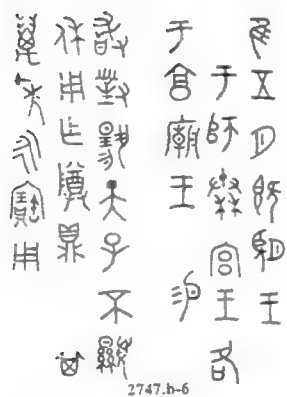 隹五月既朢王
于師秦宮王各
于亯廟王
敢對揚天子不顯
休用乍尊鼎其
萬年永寶用
2747.b-6